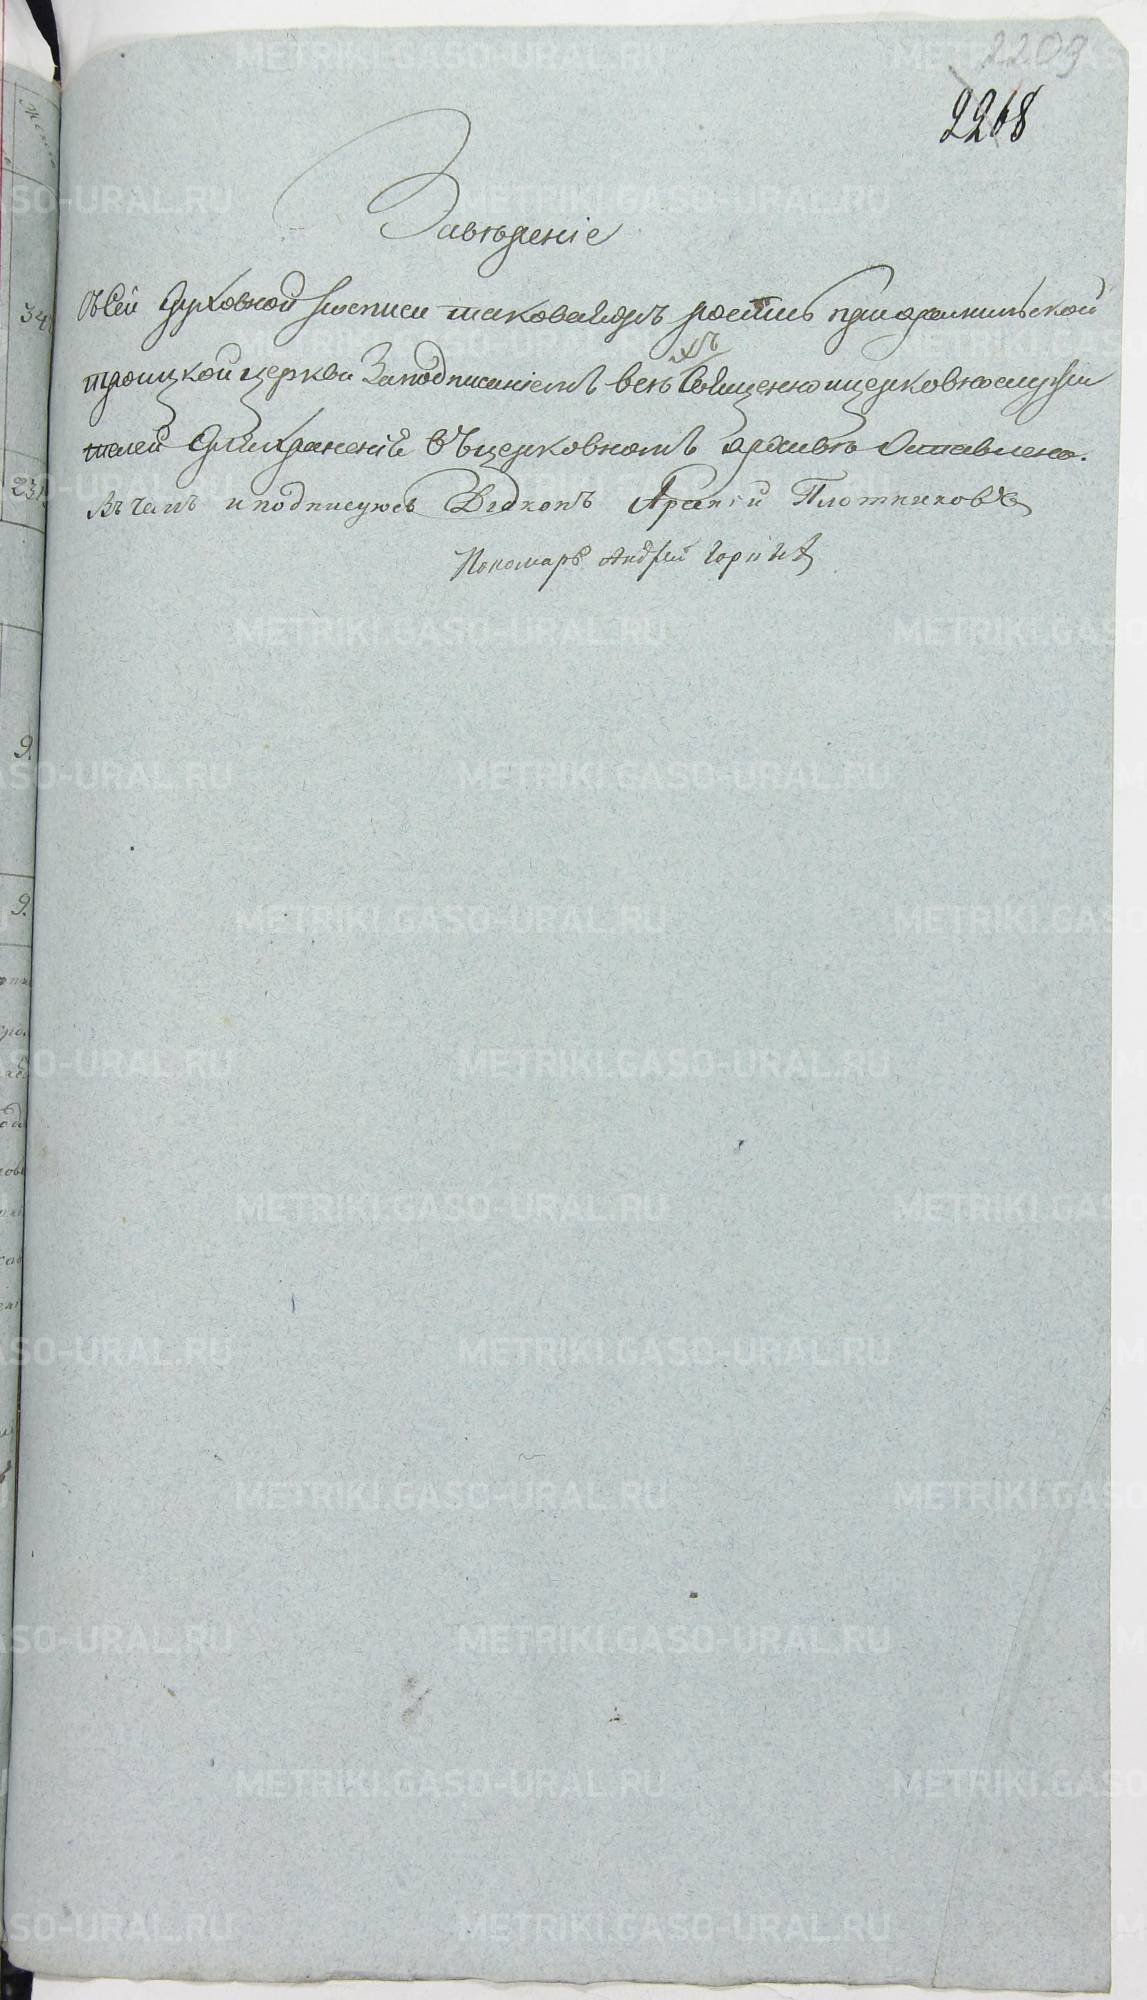 2209
2268
Завѣренiе
Сѣй Духовной росписи таковаяжъ роспись при арамильской
троицкой церкви За подписанiемъ всѣхъ Священно и церковнослужи
телей Для храненiя Въ церковномъ архивѣ Оставлена.
Въ чемъ и подписуюсь Дiаконъ Арсенiй Плотниковъ
Пономарь Андрей
34
231
9.
9.
METRIKI.GASO-URAL.RU